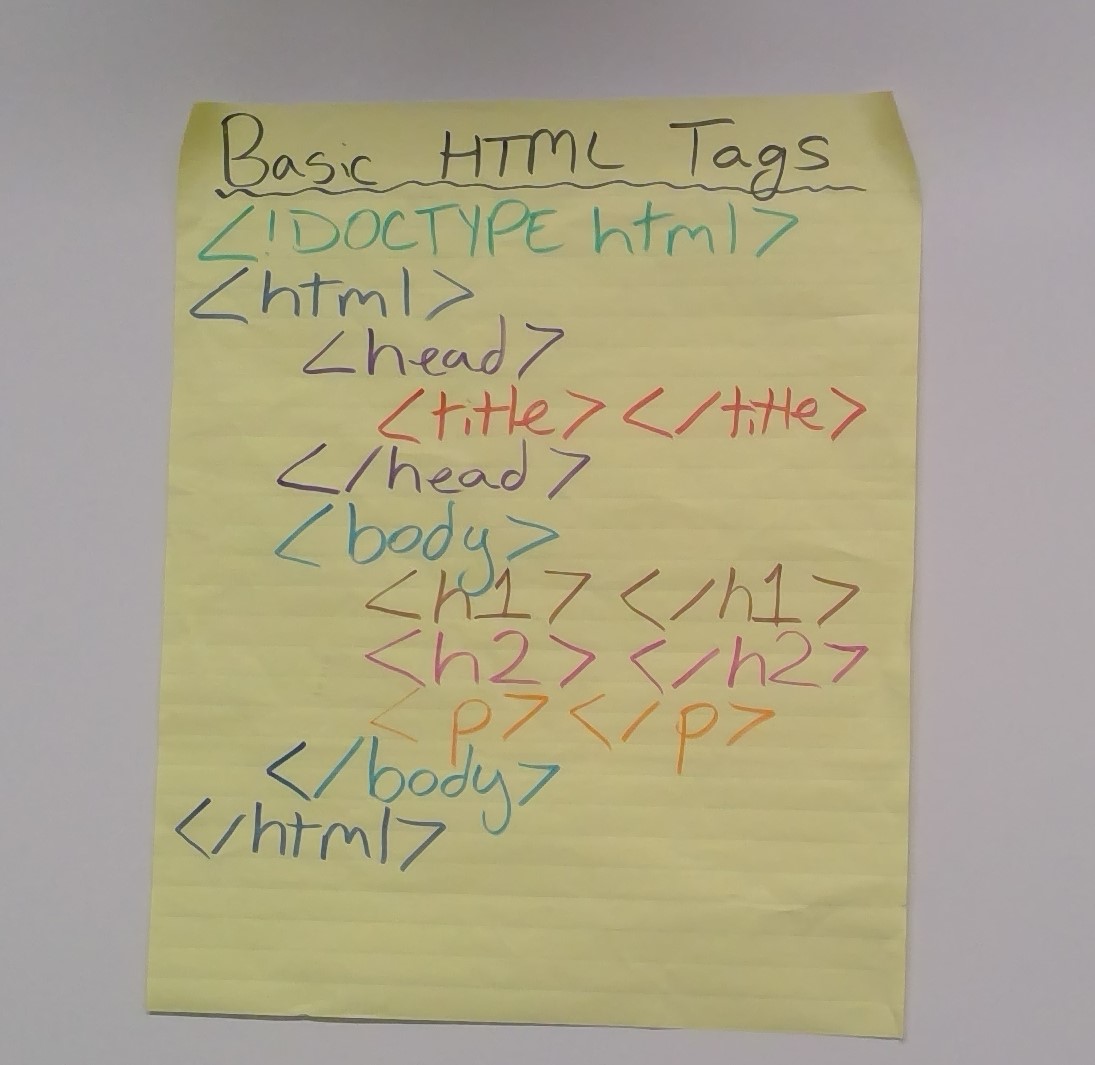 Basic HTML Tags
<!DOCTYPE html>
<html>
<head>
<title></title>
</head>
<body>
<h1></h1>
<h2></h2>
<p></p>
</body>
</html>